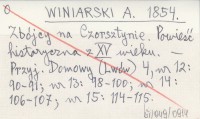 WINIARSKI A. 1854.
Zbójcy na Czorsztynie. Powieść
historyczna z XV wieku. —
Przyj. Domowy (Lwów) 4, nr 12:
90-91; nr 13: 98-100; nr 14:
106-107; nr 15: 114-115.